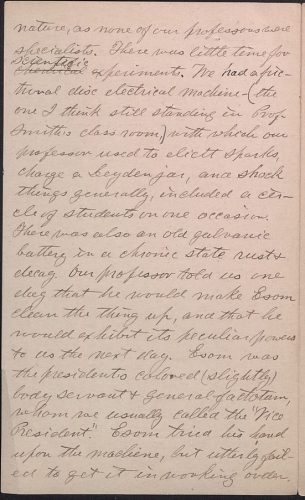 nature, as none of our professors were
specialists. There was little time for
Scientific
chemical experiments. We had a fric-
tional disc electrical machine - (the
one I think still standing in Prof.
Smith's class room) with which our
professor used to elicit sparks,
charge a Leyden jar, and shock
things generally, included a cir-
cle of students on one occasion.
There was also an old galvanic
battery in a chronic state rust &
decay. Our professor told us one
day that he would make Esom
clean the thing up, and that he
would exhibit its peculiar powers
to us the next day. Esom was
the president's colored (slightly)
body servant & general factotum,
whom we usually called the "Vice
President". Esom tried his hand
upon the machiene, but utterly fail-
ed to get it in working order,